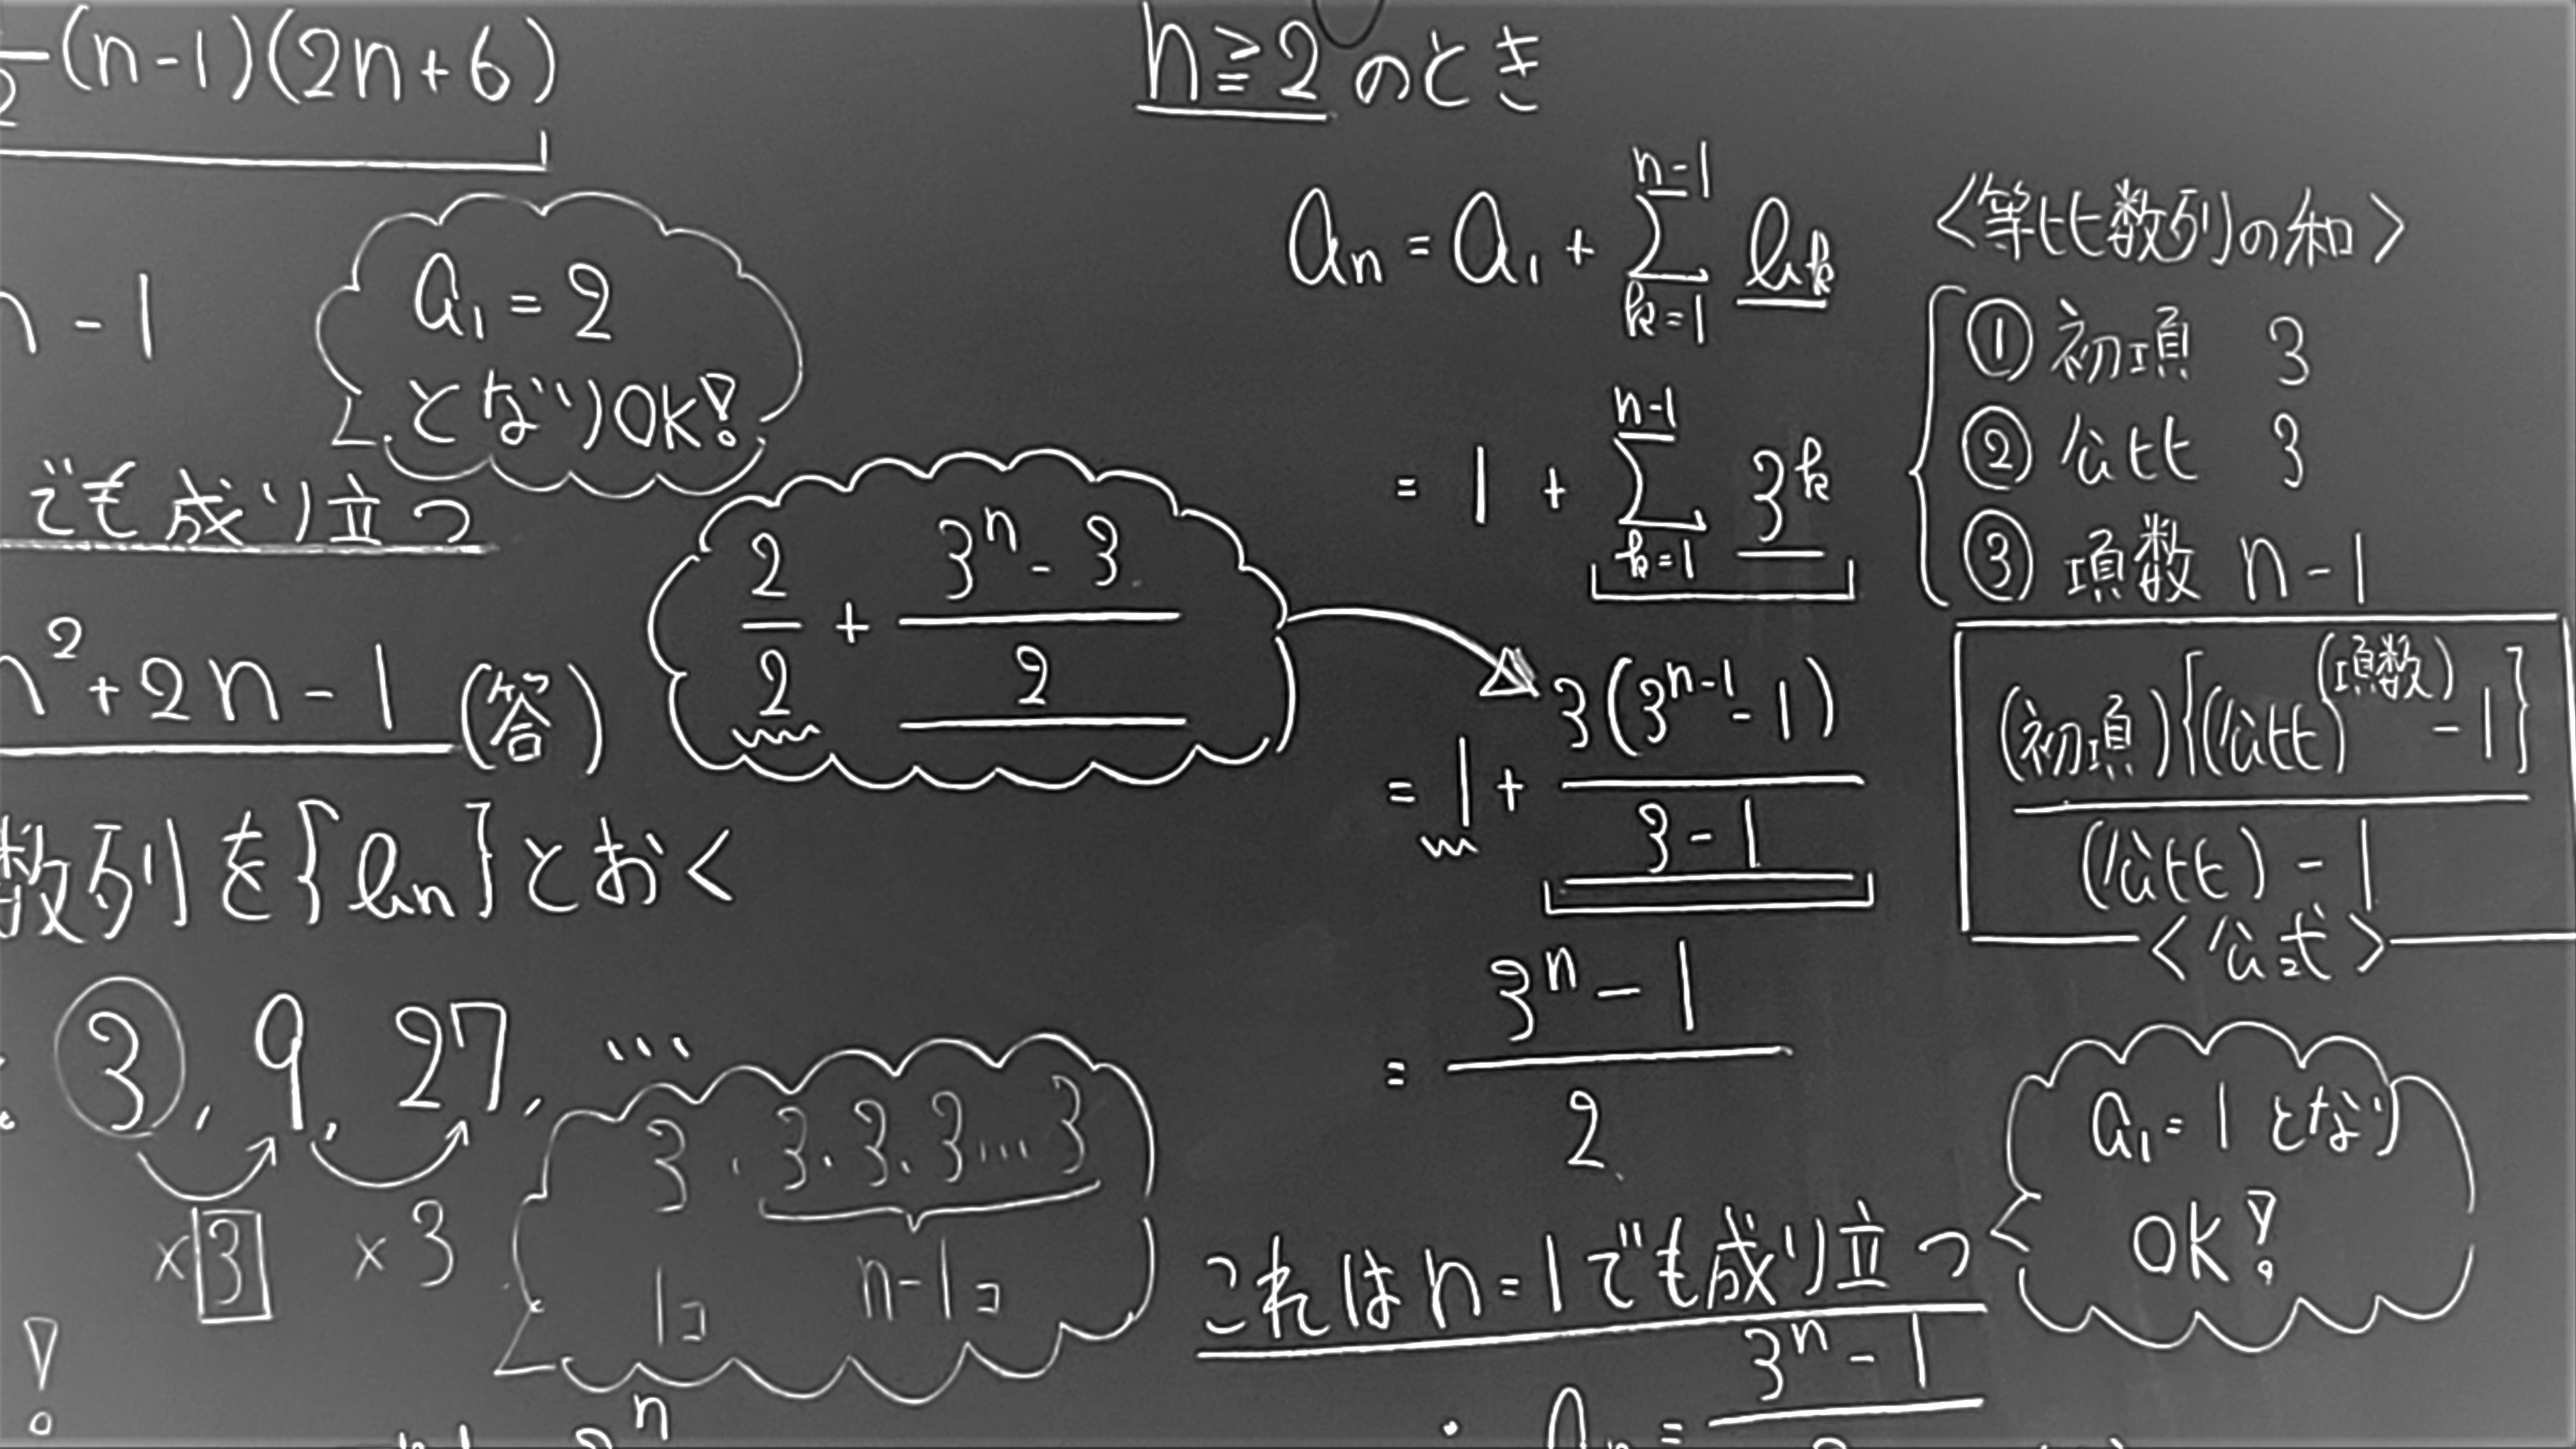 (n-1)(2n+6)
n-1
a₁=2
となりOK!
でも成り立つ
n²+2n-1 (答)
数列を{bn}とおく
3, 9, 27, ...
×3 ×3
3・3・3・3…3
1コ n-1コ
!
n
2/2 + (3ⁿ-3)/2
n≧2のとき
an = a₁ + Σ[k=1→n-1] bk
= 1 + Σ[k=1→n-1] 3ᵏ
= 1 + 3(3ⁿ⁻¹-1)/(3-1)
= (3ⁿ-1)/2
これはn=1でも成り立つ
an = 3ⁿ-1
<等比数列の和>
① 初項 3
② 公比 3
③ 項数 n-1
(初項){(公比)^(項数)-1}
(公比)-1
<公式>
a₁=1となり
OK!